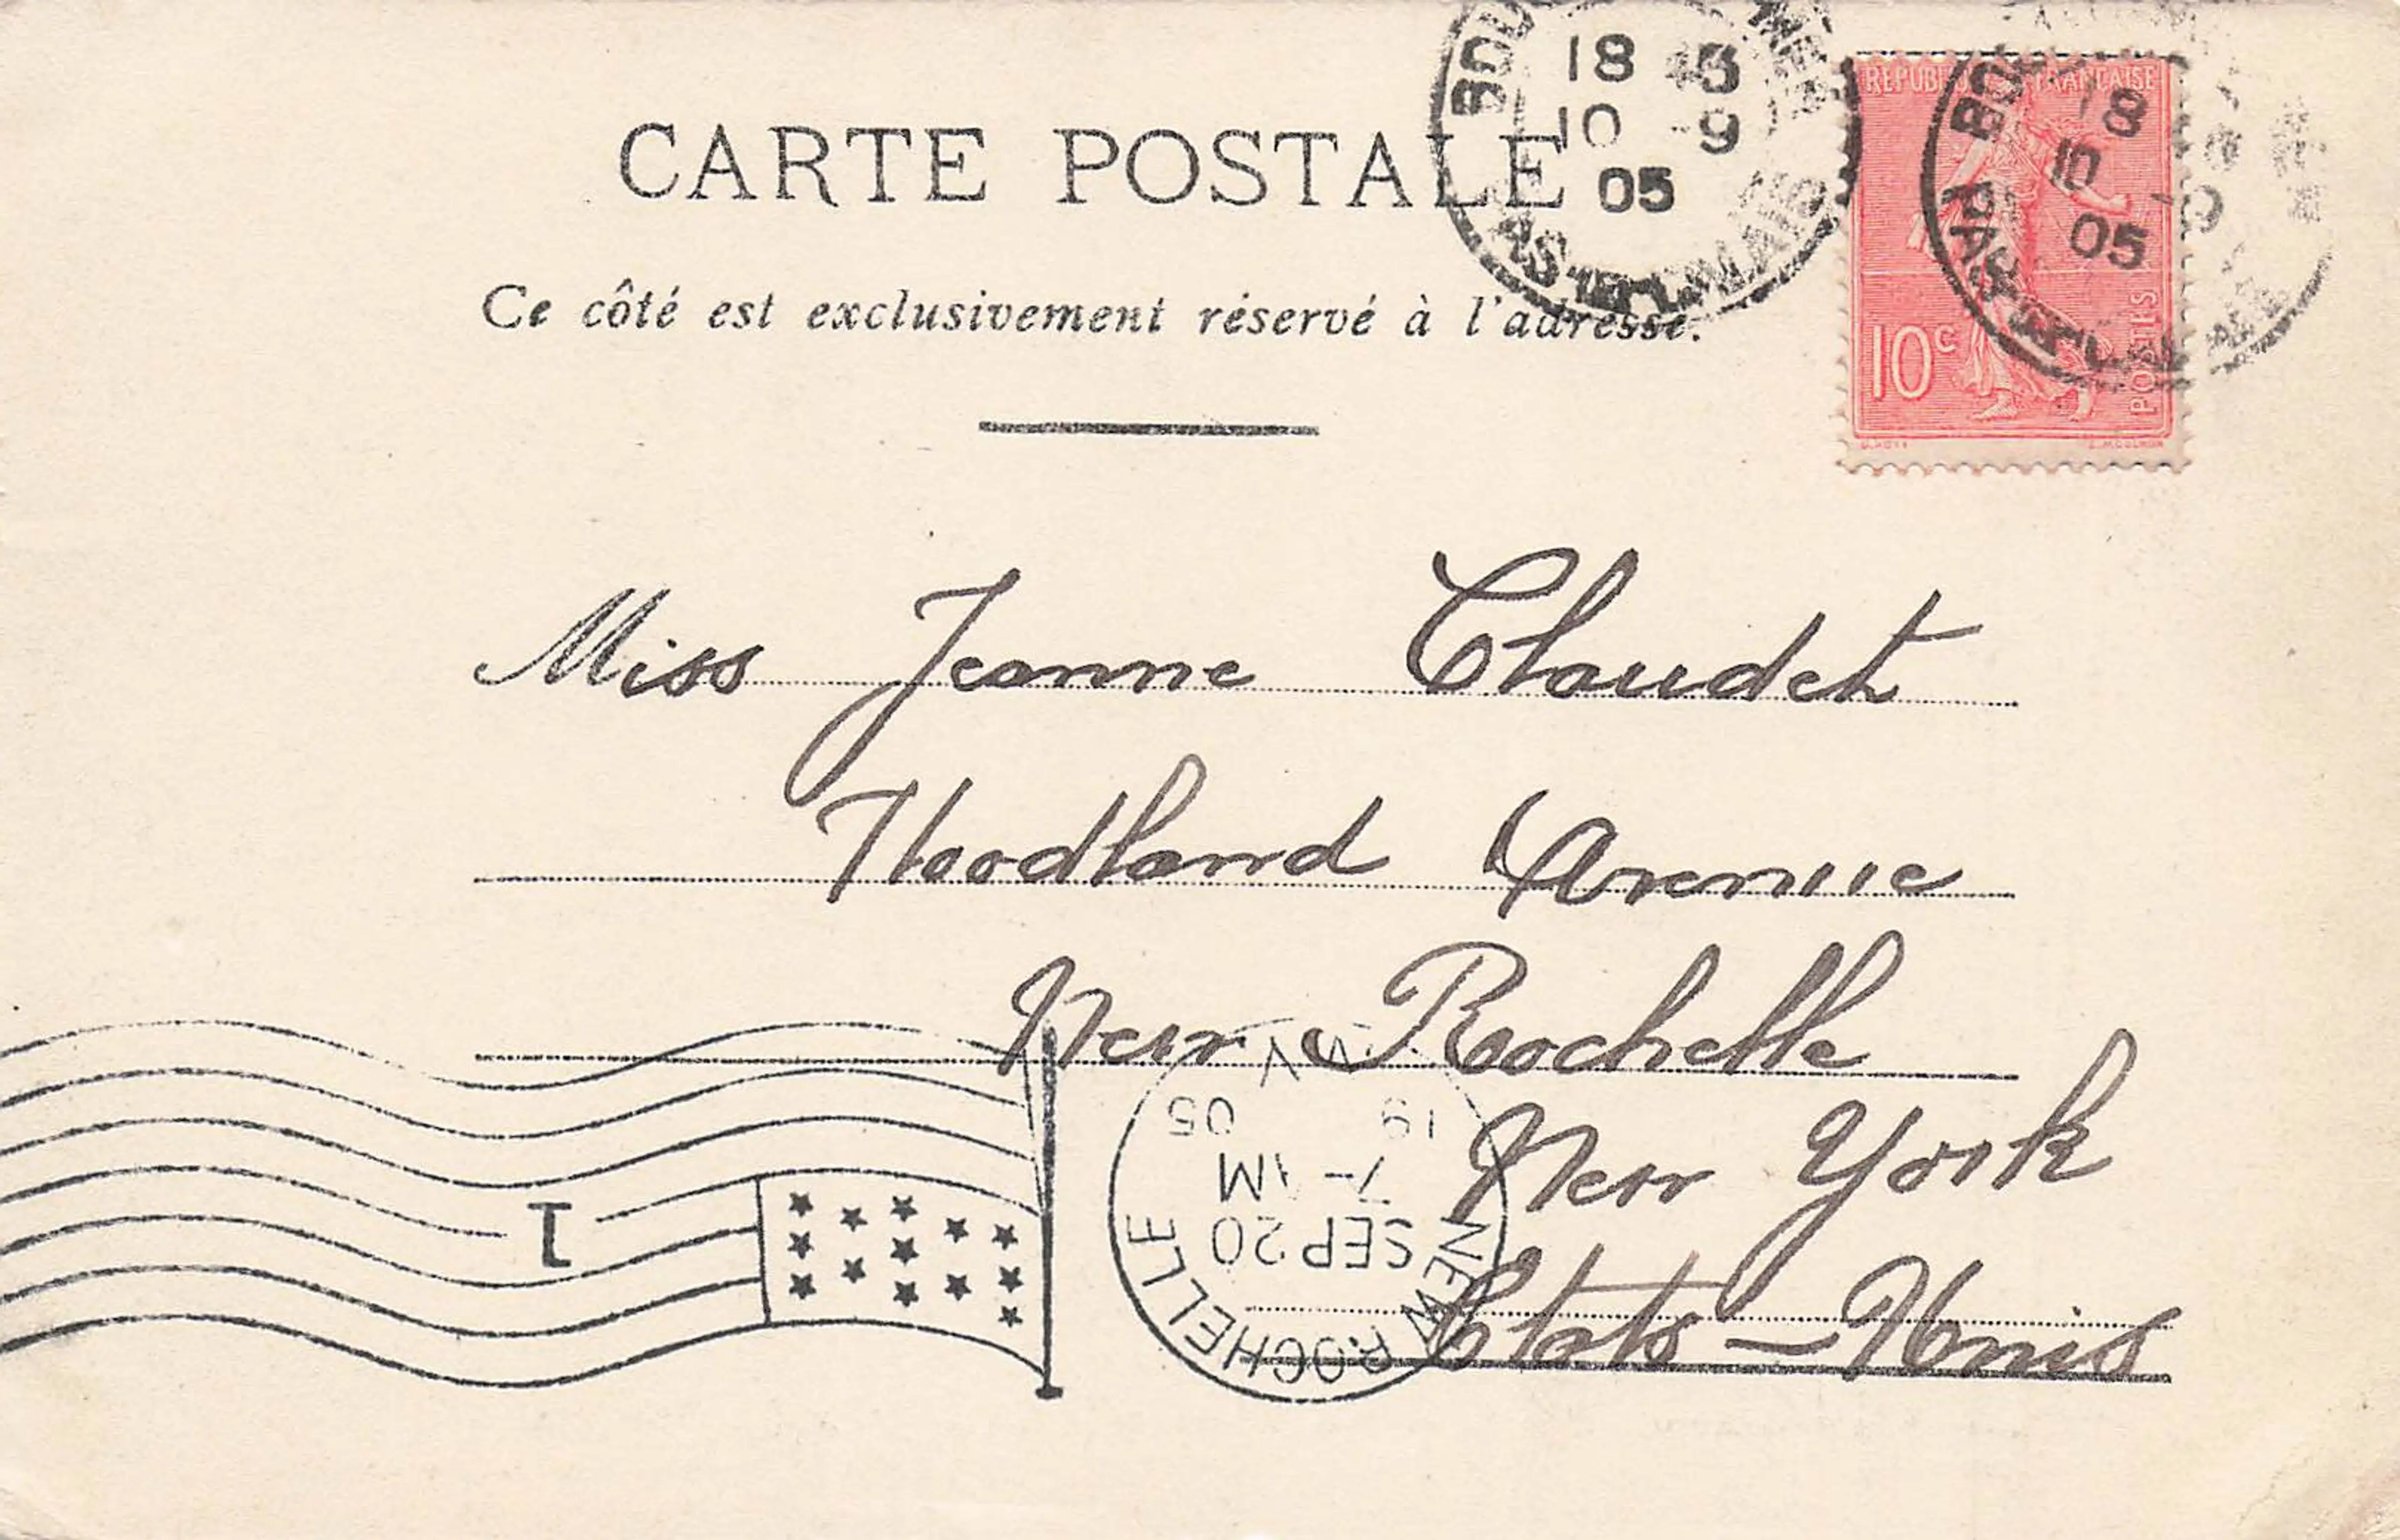 CARTE POSTALE
Ce côté est exclusivement réservé à l'adresse.
18
10 - 9
05
PAS-DE-CALAIS
REPUBLIQUE FRANCAISE
10c
POSTES
18
10 - 9
05
Miss Jeanne Claudet
Woodland Avenue
New Rochelle
New York
Etats-Unis
1
NEW ROCHELLE
SEP 20
7-AM
1905
N.Y.